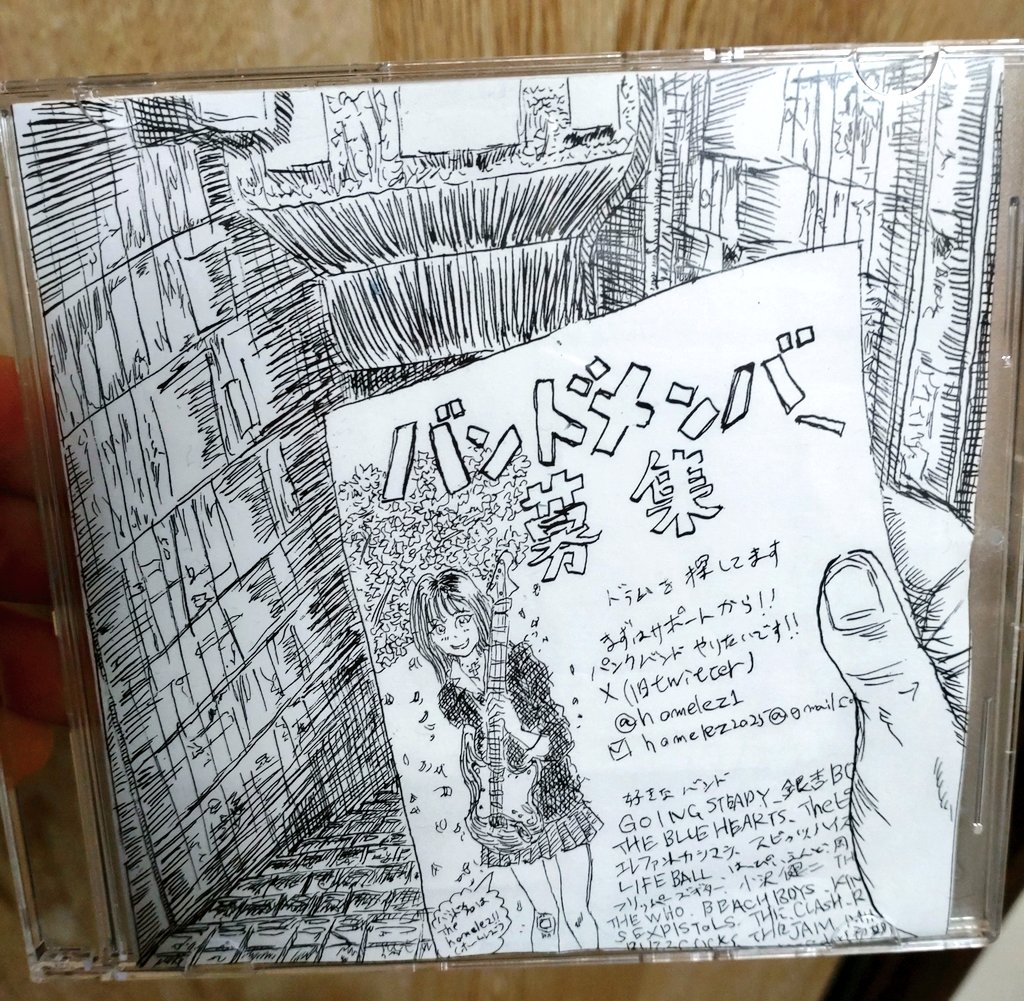 バンドメンバー
募集
ドラムを探してます
まずはサポートから!!
パンクバンドやりたいです!!
X(旧twitter)
@homelez1
homelez2025@gmail.c
好きなバンド
GOING STEADY 銀杏BO
THE BLUE HEARTS. The
エレファントカシマシ スピッツ ハイス
LIFE BALL はっぴいえんど
フリッパーズギター 小沢健二 TH
THE WHO. BEACH BOYS. KIN
SEXPISTOLS. THE CLASH. R
BUZZCOCKS THE JAM
バンド名は
the
homelez!!